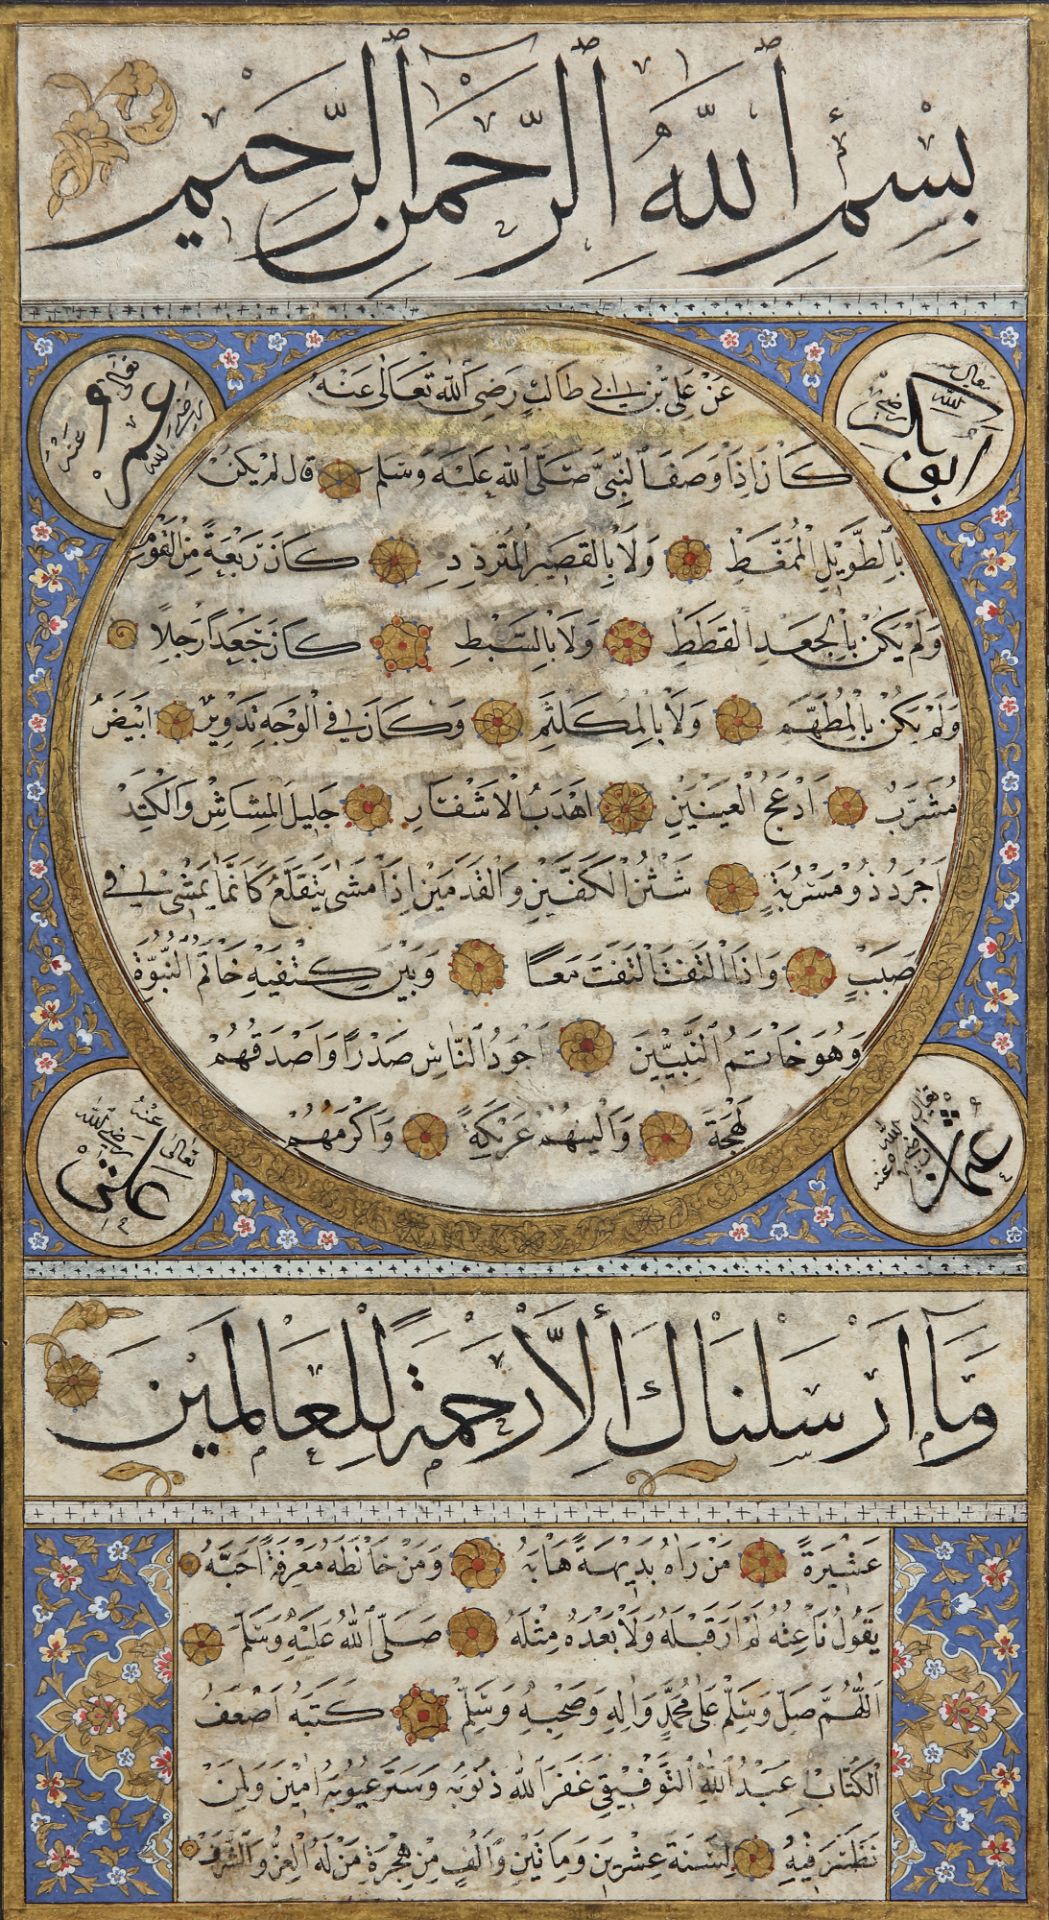 بِسْمِ ٱللَّهِ ٱلرَّحْمٰنِ ٱلرَّحِيمِ
ابو بكر رضى الله تعالى عنه
عمر رضى الله تعالى عنه
عَنْ عَلِيِّ بْنِ ابى طَالِبٍ رَضِىَ اللّٰهُ تَعَالٰى عَنْهُ
كَانَ اِذَا وَصَفَ النَّبِىَّ صَلَّى اللّٰهُ عَلَيْهِ وَسَلَّمَ قَالَ لَمْ يَكُنْ
بِالطَّوِيلِ الْمُمَّغِطِ وَلَا بِالْقَصِيرِ الْمُتَرَدِّدِ كَانَ رَبْعَةً مِنَ الْقَوْمِ
وَلَمْ يَكُنْ بِالْجَعْدِ الْقَطَطِ وَلَا بِالسَّبْطِ كَانَ جَعْدًا رَجِلًا
وَلَمْ يَكُنْ بِالْمُطَهَّمِ وَلَا بِالْمُكَلْثَمِ وَكَانَ فِى الْوَجْهِ تَدْوِيرٌ ابْيَضُ
مُشْرَبٌ اَدْعَجُ الْعَيْنَيْنِ اَهْدَبُ الْاَشْفَارِ جَلِيلُ الْمُشَاشِ وَالْكَتَدِ
اَجْرَدُ ذُو مَسْرُبَةٍ شَثْنُ الْكَفَّيْنِ وَالْقَدَمَيْنِ اِذَا مَشٰى يَتَقَلَّعُ كَانَّمَا يَمْشِى فِى
صَبَبٍ وَاِذَا الْتَفَتَ الْتَفَتَ مَعًا وَبَيْنَ كِتْفَيْهِ خَاتَمُ النُّبُوَّةِ
وَهُوَ خَاتَمُ النَّبِيِّينَ اَجْوَدُ النَّاسِ صَدْرًا وَاَصْدَقُهُمْ
لَهْجَةً وَاَلْيَنُهُمْ عَرِيكَةً وَاَكْرَمُهُمْ
عثمان رضى الله تعالى عنه
على رضى الله تعالى عنه
وَمَا اَرْسَلْنَاكَ اِلَّا رَحْمَةً لِلْعَالَمِينَ
عَشِيرَةً مَنْ رَاٰهُ بَدِيهَةً هَابَهُ وَمَنْ خَالَطَهُ مَعْرِفَةً اَحَبَّهُ
يَقُولُ نَاعِتُهُ لَمْ اَرَ قَبْلَهُ وَلَا بَعْدَهُ مِثْلَهُ صَلَّى اللّٰهُ عَلَيْهِ وَسَلَّمَ
اَللّٰهُمَّ صَلِّ وَسَلِّمْ عَلٰى مُحَمَّدٍ وَاٰلِهِ وَصَحْبِهِ وَسَلِّمْ كَتَبَهُ اَضْعَفُ
الْكُتَّابِ عَبْدُ اللّٰهِ التَّوْفِيقِى غَفَرَ اللّٰهُ ذُنُوبَهُ وَسَتَرَ عُيُوبَهُ اٰمِينَ وَلِمَنْ
نَظَرَ فِيهِ لِسَنَةِ عِشْرِينَ وَمِاتَيْنِ وَاَلْفٍ مِنْ هِجْرَةِ مَنْ لَهُ الْعِزُّ وَالشَّرَفُ